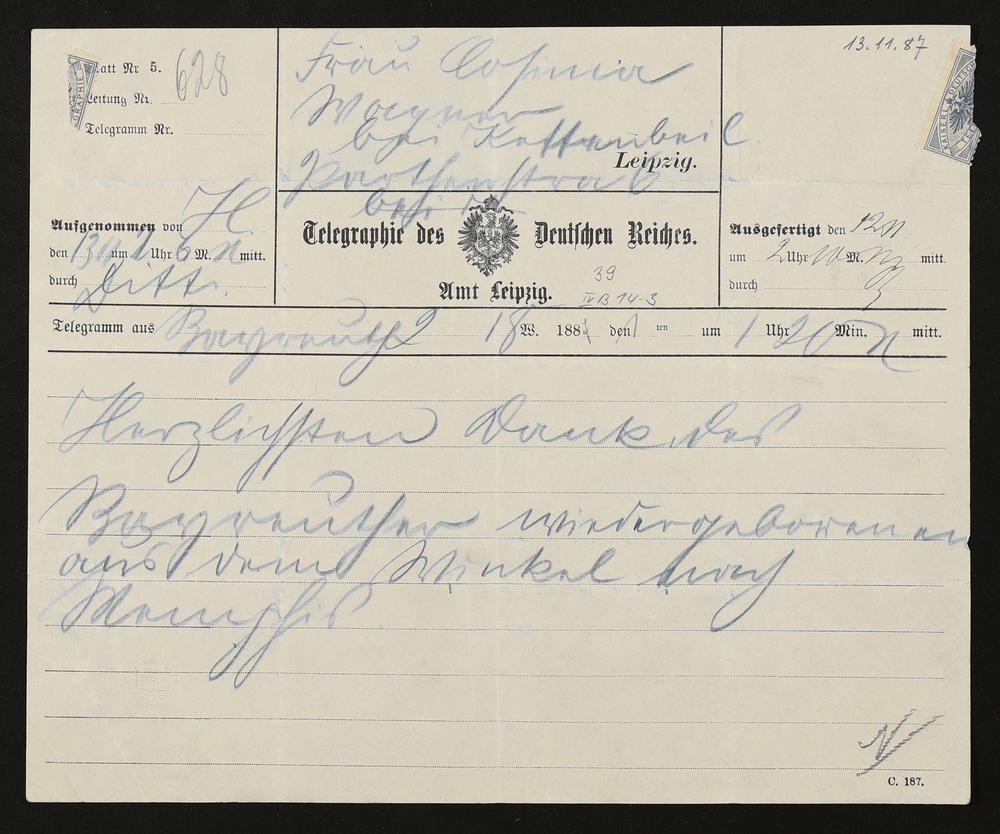 13.11.87
Blatt Nr 5.
628
Leitung Nr.
Telegramm Nr.
Frau Cosima
Wagner
bei Kettenbeil
Leipzig.
Aufgenommen von H
den 13/11 um 2 Uhr 6 M. N mitt.
durch Ditt.
Telegraphie des Deutschen Reiches.
Amt Leipzig.
39
IV B 14-3
Ausgefertigt den
um 2 Uhr 10 M. mitt.
durch
Telegramm aus Bayreuth 2 18 W. 188 den ten um 1 Uhr 20 Min. N mitt.
Herzlichsten Dank des
Bayreuther wiedergeborenen
aus dem Winkel nach
Memphis.
C. 187.